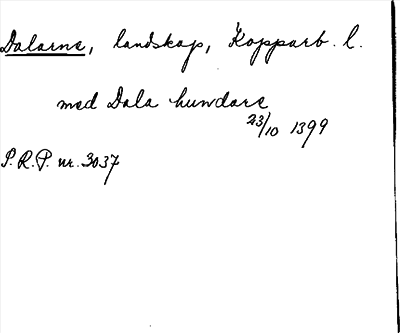 Dalarne, landskap, Kopparb. l.
med Dala hundare
23/10 1399
S.R.P. nr. 3037